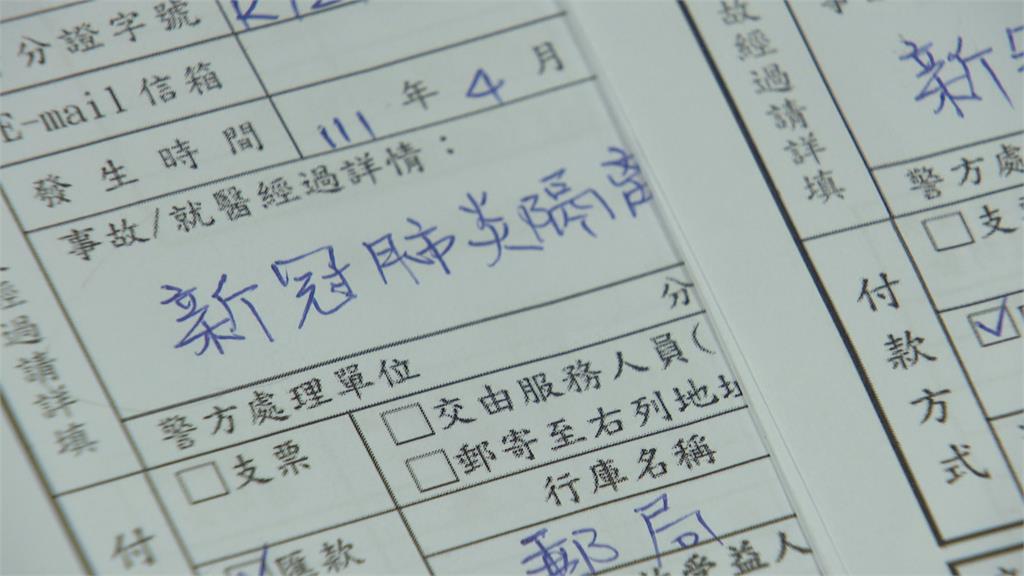 分證字號
E-mail信箱
發生時間 111 年 4 月
事故/就醫經過詳情：
新冠肺炎隔離
過請詳填
警方處理單位
分
付
□支票
□交由服務人員(
□郵寄至右列地址
行庫名稱
☑匯款
郵局
受益人
故經過請詳填
新
警方處
付款方式
□支
☑